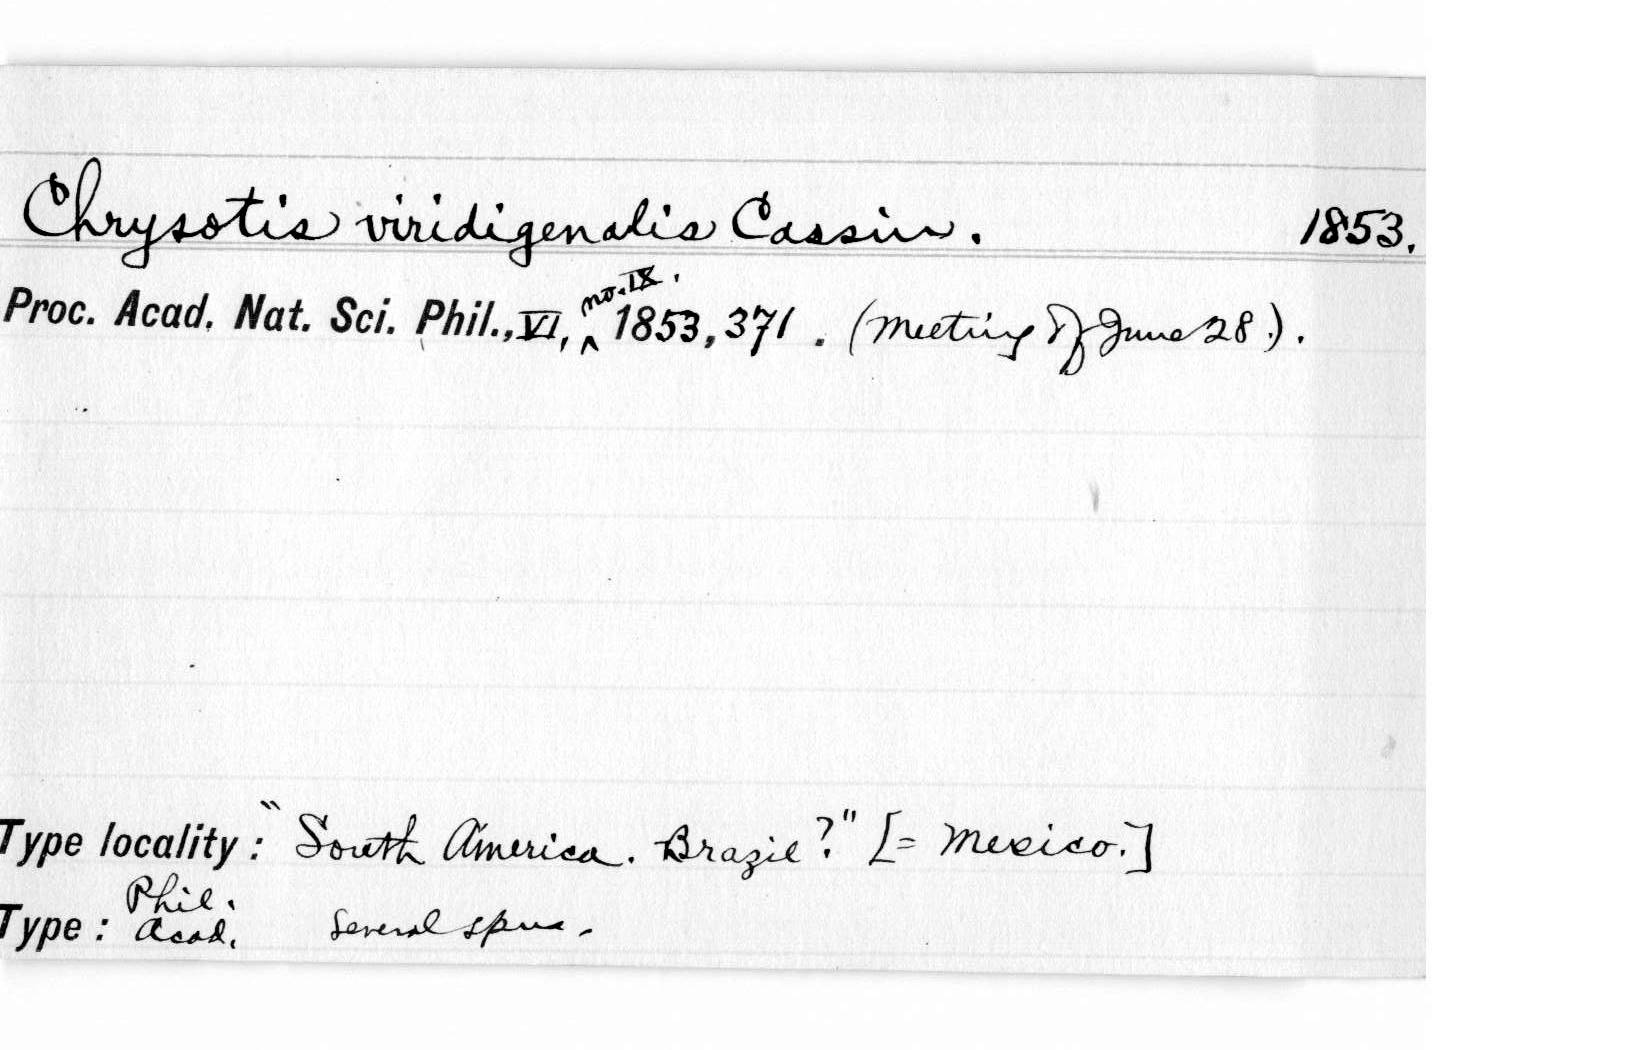 Chrysotis viridigenalis Cassin. 1853.
Proc. Acad. Nat. Sci. Phil., VI, ^no. IX. 1853, 371. (Meeting of June 28.).
Type locality: "South America. Brazil?" [= Mexico.]
Phil.
Type: Acad. Several spms.